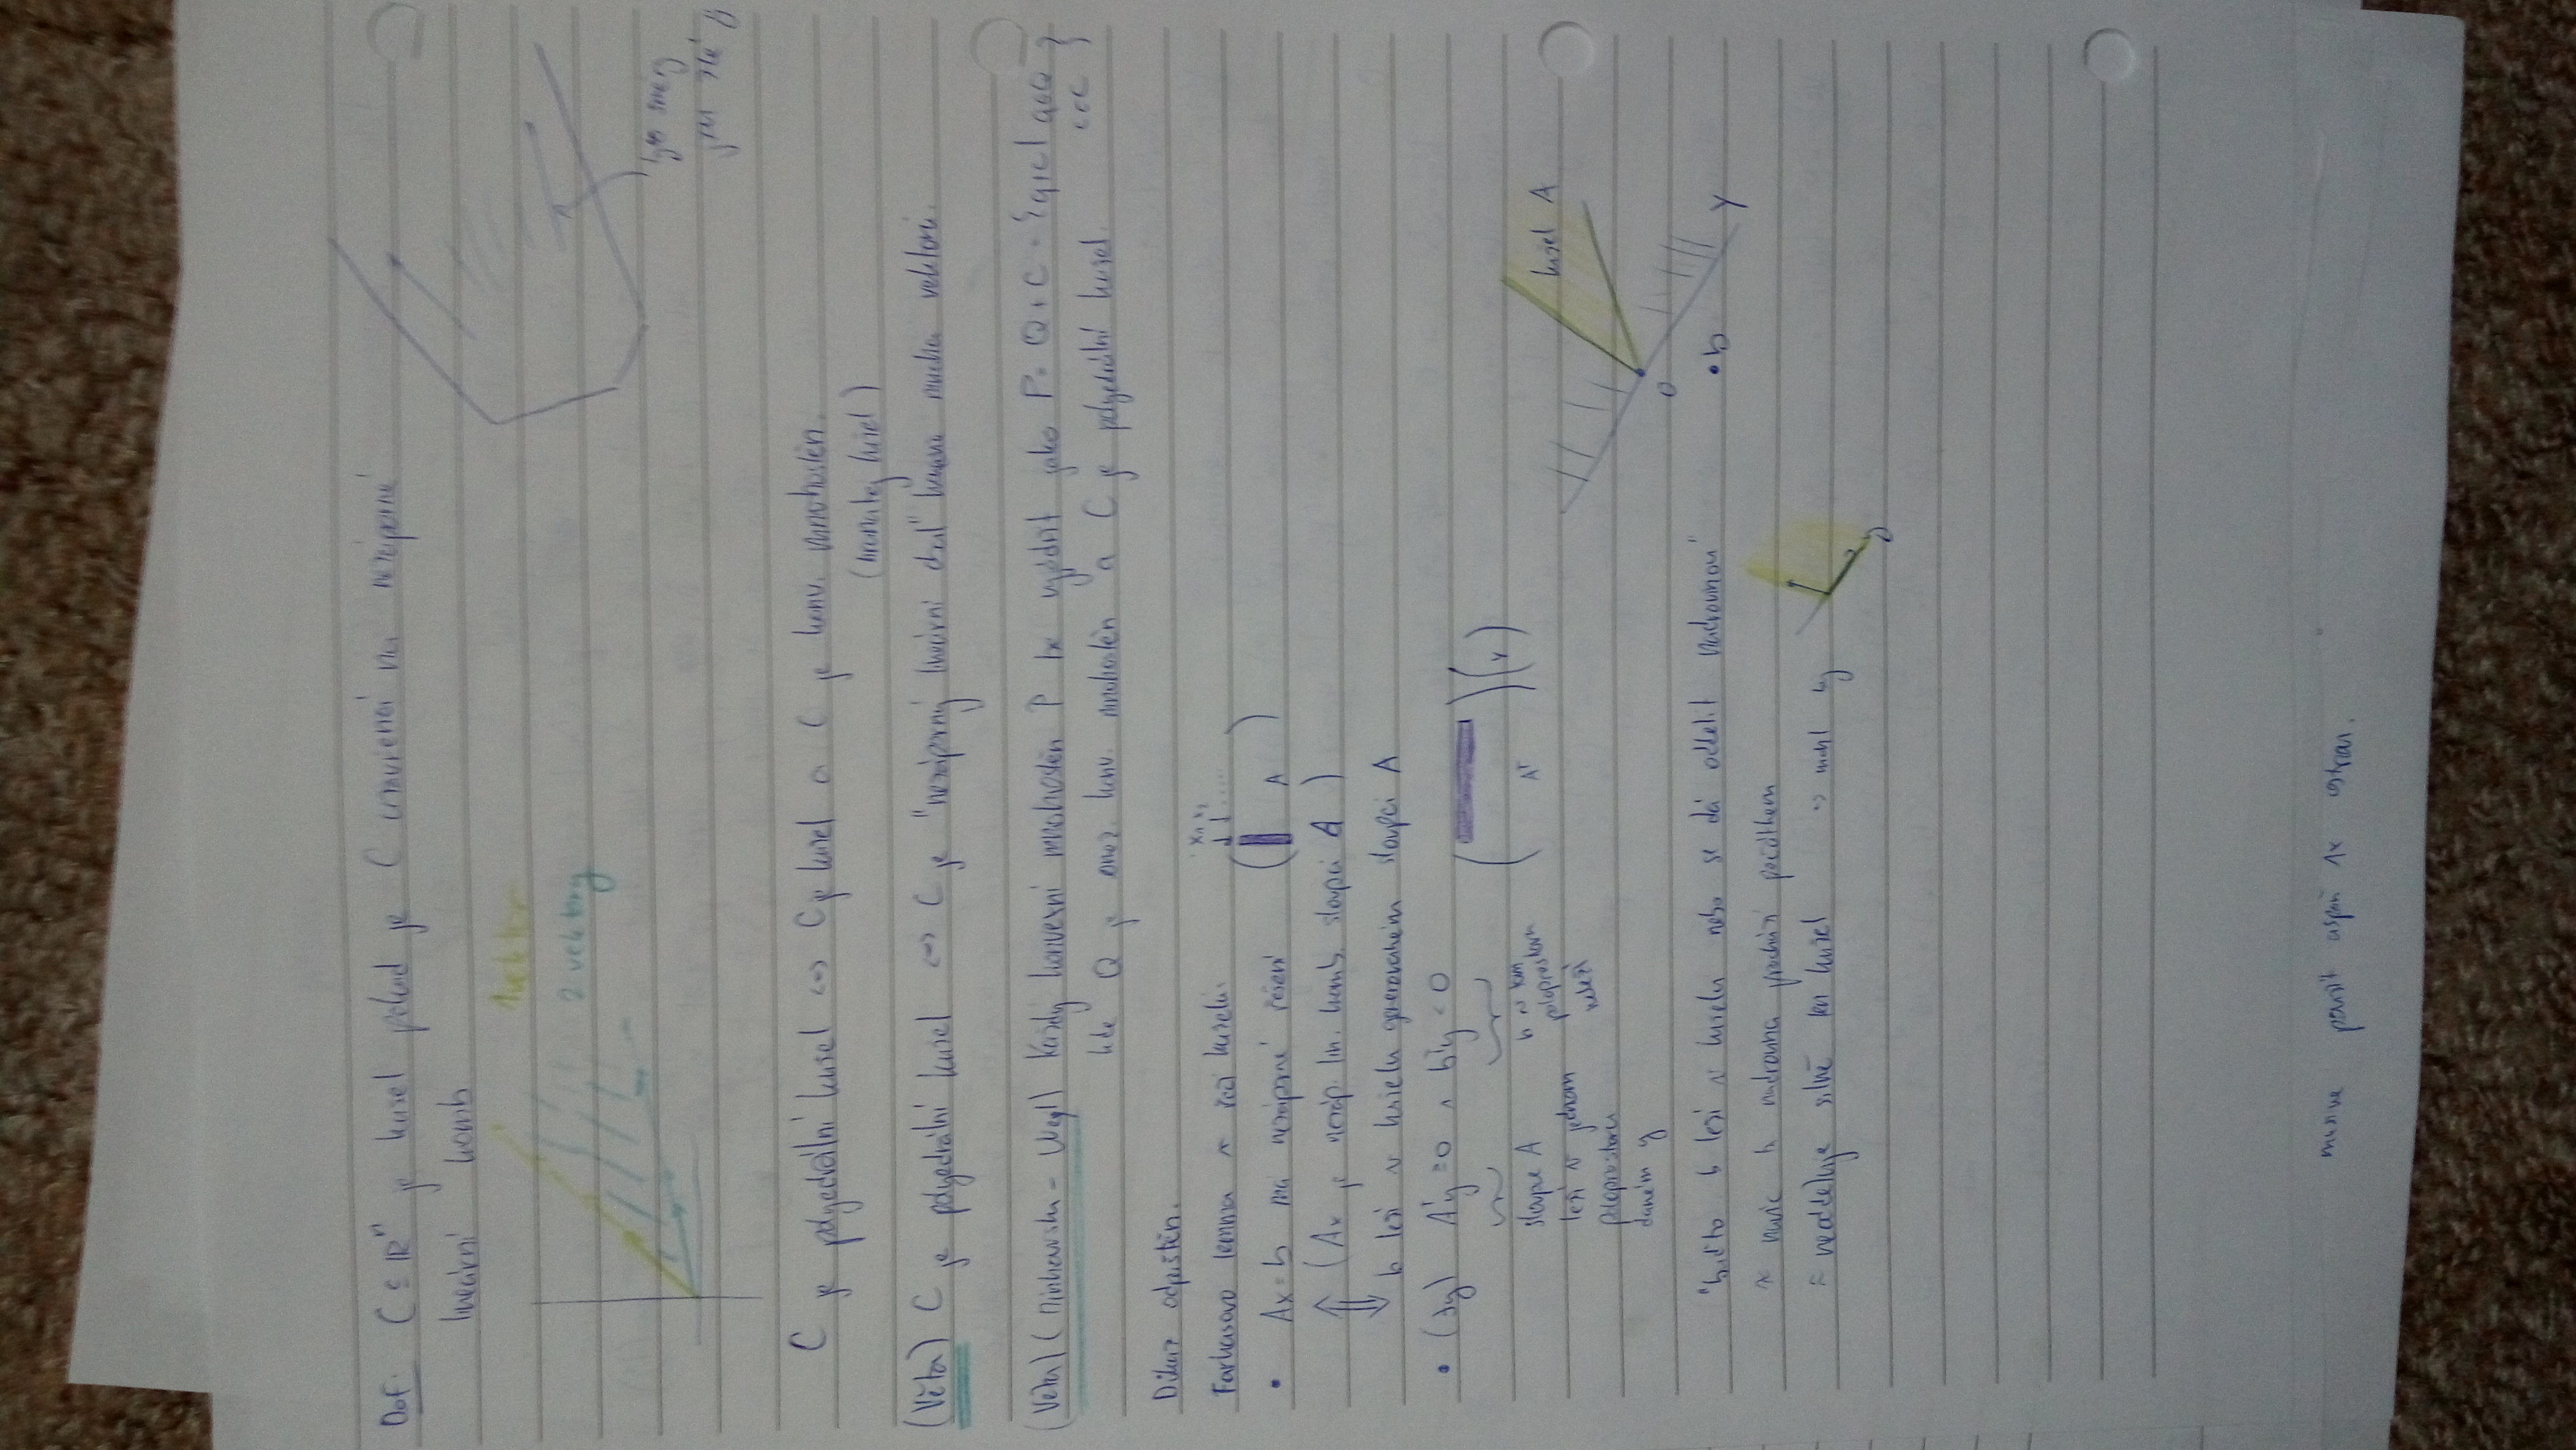 Def: C ⊆ ℝⁿ je kužel pokud je C uzavřená na nezáporné
lineární komb
1 vektor
2 vektory
tyto směry
jsou zlé
C je polyedrální kužel <=> C je kužel a C je konv. mnohostěn.
(hranatej kužel)
(Věta) C je polyedrální kužel <=> C je "nezáporný lineární obal" konečně mnoha vektorů.
(Věta) (Minkowski - Weyl) Každý konvexní mnohostěn P lze vyjádřit jako P = Q + C = {q+c | q∈Q c∈C}
kde Q je omez. konv. mnohostěn a C je polyedrální kužel.
Důkaz odpuštěn.
Farkasovo lemma v řeči kuželů.
x₁ x₂ ....
• Ax = b má nezáporné řešení
A
(Ax je nezáp. lin. komb. sloupců A)
b leží v kuželu generovaném sloupci A
• (∃y) Aᵀy ≥ 0 ∧ bᵀy < 0
Aᵀ y
sloupce A
leží v jednom
poloprostoru
daném y
b v tom
poloprostoru
neleží
kužel A
0
• b
y
"buďto b leží v kuželu nebo se dá oddělit nadrovinou"
navíc ta nadrovina prochází počátkem
neodděluje silně ten kužel => mohl by
b
musíme použít aspoň 1x